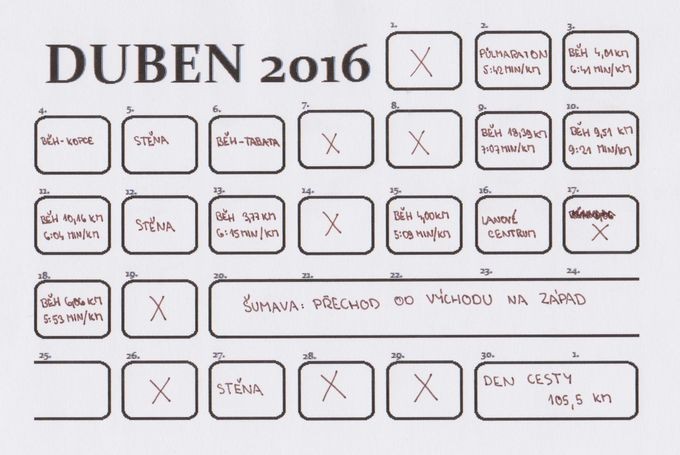 DUBEN 2016
1.
X
2.
PŮLMARATON
5:42 MIN/KM
3.
BĚH 4,01 KM
6:41 MIN/KM
4.
BĚH-KOPCE
5.
STĚNA
6.
BĚH-TABATA
7.
X
8.
X
9.
BĚH 18,39 KM
7:07 MIN/KM
10.
BĚH 9,51 KM
9:21 MIN/KM
11.
BĚH 10,16 KM
6:04 MIN/KM
12.
STĚNA
13.
BĚH 3,77 KM
6:15 MIN/KM
14.
X
15.
BĚH 4,00 KM
5:09 MIN/KM
16.
LANOVÉ
CENTRUM
17.
X
18.
BĚH 6,06 KM
5:53 MIN/KM
19.
X
20. 21. 22. 23. 24.
ŠUMAVA: PŘECHOD OD VÝCHODU NA ZÁPAD
25.
26.
X
27.
STĚNA
28.
X
29.
X
30. 1.
DEN CESTY
105,5 KM